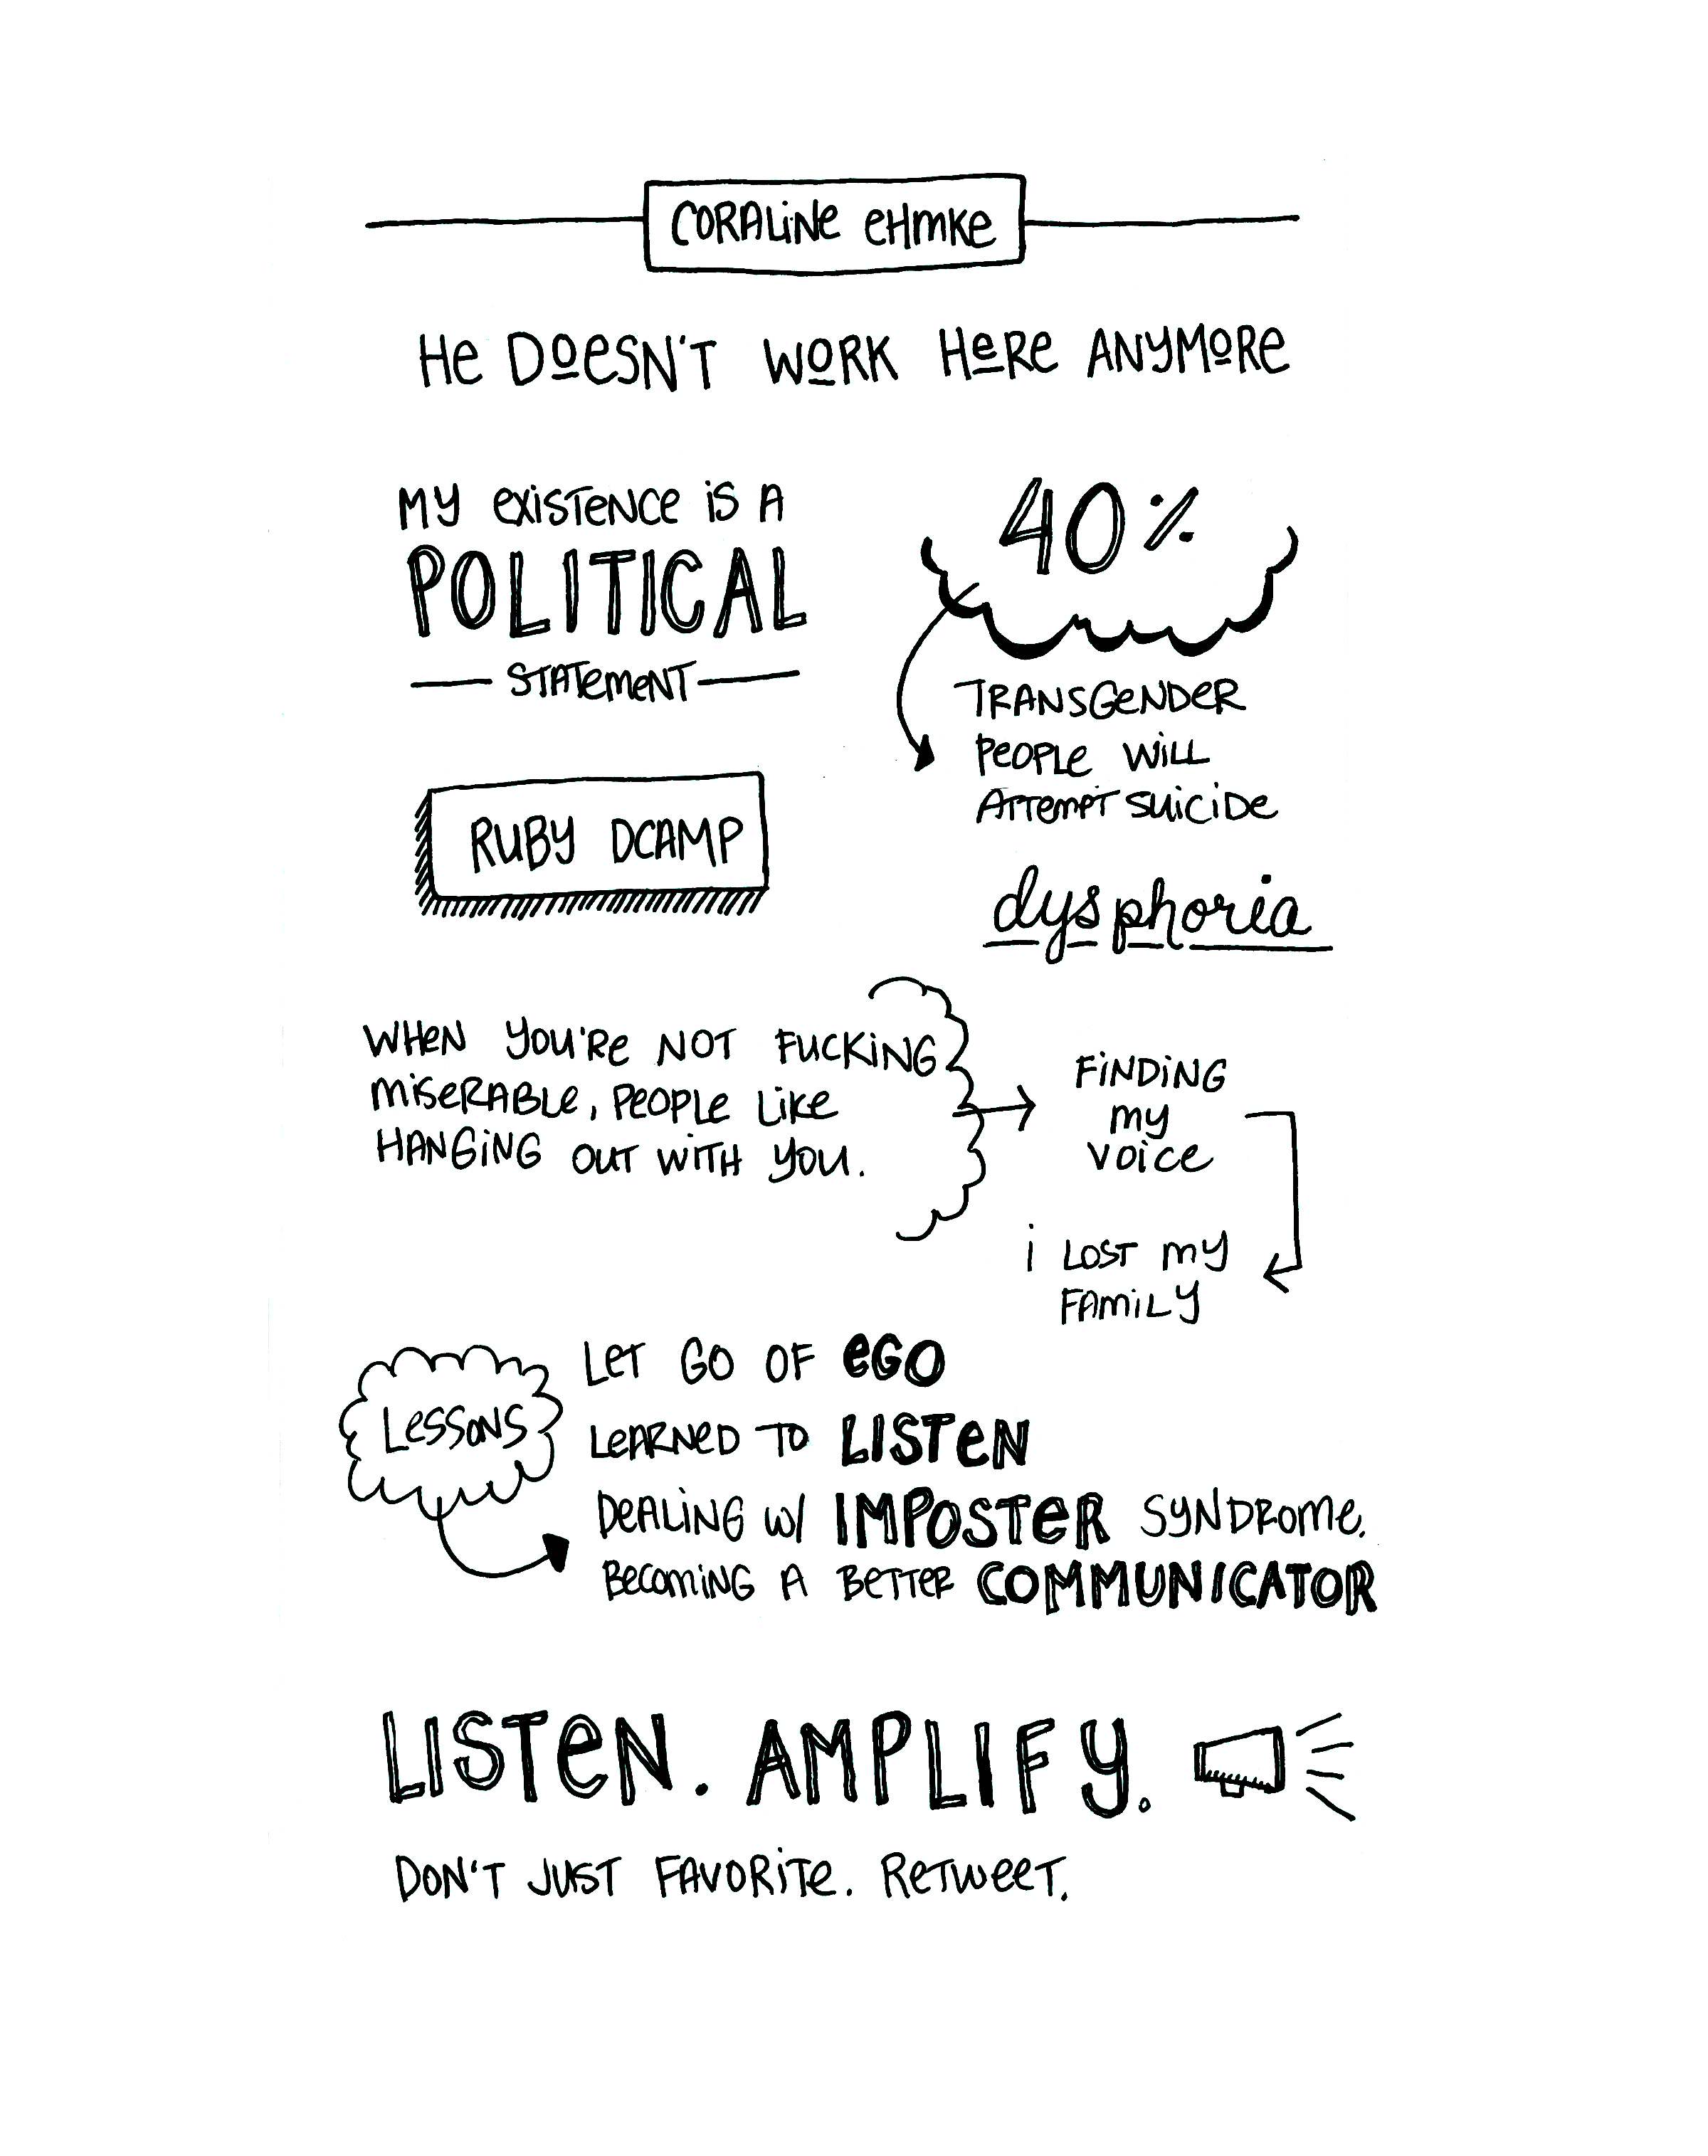 CORALINE EHMKE
HE DOESN'T WORK HERE ANYMORE
MY EXISTENCE IS A
POLITICAL
STATEMENT
40%
TRANSGENDER
PEOPLE WILL
ATTEMPT SUICIDE
RUBY DCAMP
dysphoria
WHEN YOU'RE NOT FUCKING
MISERABLE, PEOPLE LIKE
HANGING OUT WITH YOU.
FINDING
MY
VOICE
I LOST MY
FAMILY
LESSONS
LET GO OF EGO
LEARNED TO LISTEN
DEALING W/ IMPOSTER SYNDROME.
BECOMING A BETTER COMMUNICATOR
LISTEN. AMPLIFY.
DON'T JUST FAVORITE. RETWEET.